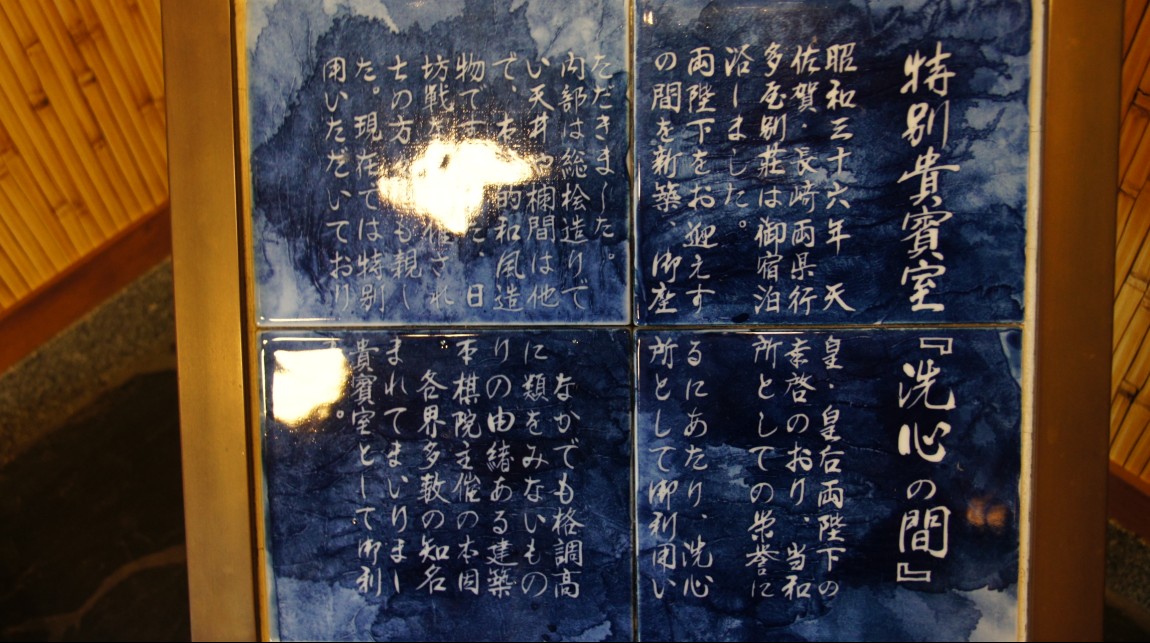 特別貴賓室『洗心の間』
昭和三十六年 天皇・皇后両陛下の
佐賀・長崎両県行幸啓のおり、当和
多屋別荘は御宿泊所としての栄誉に
浴しました。
両陛下をお迎えするにあたり、洗心
の間を新築、御座所として御利用い
ただきました。
内部は総桧造りで、なかでも格調高
い天井や欄間は他に類をみないもの
で、本格的和風造りの由緒ある建築
物です た、日本棋院主催の本因
坊戦 催され、各界多数の知名
士の方 も親しまれてまいりまし
た。現在では特別貴賓室として御利
用いただいております。